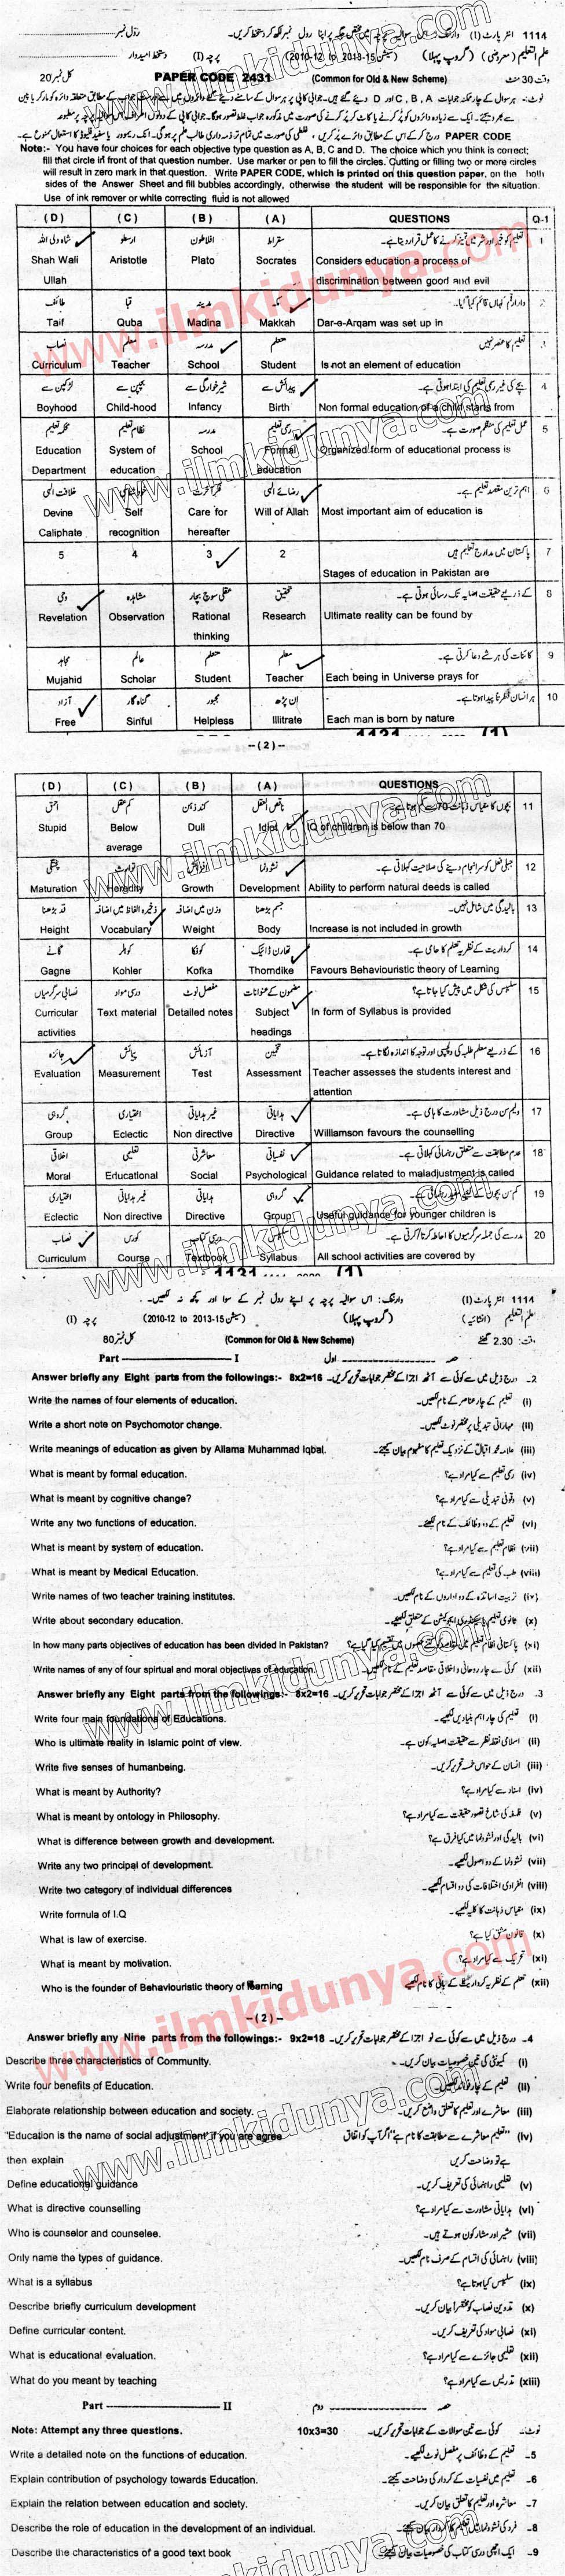 1114 انٹر پارٹ (I) وارننگ:۔ اس سوالیہ پرچہ میں مختص جگہ پر اپنا رول نمبر لکھ کر دستخط کریں۔ رول نمبر
علم التعلیم (معروضی) (گروپ پہلا) (سیشن 15-2013 to 2010-12) پرچہ (I) دستخط امیدوار
وقت 30 منٹ (Common for Old & New Scheme) PAPER CODE 2431 کل نمبر 20
Note:- You have four choices for each objective type question as A, B, C and D. The choice which you think is correct;
fill that circle in front of that question number. Use marker or pen to fill the circles. Cutting or filling two or more circles
will result in zero mark in that question. Write PAPER CODE, which is printed on this question paper, on the both
sides of the Answer Sheet and fill bubbles accordingly, otherwise the student will be responsible for the situation.
Use of ink remover or white correcting fluid is not allowed
(D) (C) (B) (A) QUESTIONS Q-1
شاہ ولی اللہ ارسطو افلاطون سقراط تعلیم کو خیر اور شر میں تمیز کرنے کا عمل قرار دیتا ہے۔ 1
Shah Wali Ullah Aristotle Plato Socrates Considers education a process of discrimination between good and evil
طائف قبا مدینہ مکہ دار ارقم کہاں قائم کیا گیا۔ 2
Taif Quba Madina Makkah Dar-e-Arqam was set up in
نصاب معلم مدرسہ متعلم تعلیم کا عنصر نہیں 3
Curriculum Teacher School Student Is not an element of education
لڑکپن سے بچپن سے شیر خوارگی سے پیدائش سے بچے کی غیر رسمی تعلیم کی ابتدا ہوتی ہے۔ 4
Boyhood Child-hood Infancy Birth Non formal education of a child starts from
محکمہ تعلیم نظام تعلیم مدرسہ رسمی تعلیم عمل تعلیم کی منظم صورت ہے۔ 5
Education Department System of education School Formal education Organized form of educational process is
خلافت الٰہی خود شناسی فکر آخرت رضائے الٰہی اہم ترین مقصد تعلیم ہے۔ 6
Devine Caliphate Self recognition Care for hereafter Will of Allah Most important aim of education is
5 4 3 2 پاکستان میں مدارج تعلیم ہیں 7
Stages of education in Pakistan are
وحی مشاہدہ عقلی سوچ بچار تحقیق کے ذریعے حقیقت اصلیہ تک رسائی ہوتی ہے۔ 8
Revelation Observation Rational thinking Research Ultimate reality can be found by
مجاہد عالم متعلم معلم کائنات کی ہر شے دعا کرتی ہے۔ 9
Mujahid Scholar Student Teacher Each being in Universe prays for
آزاد گناہ گار مجبور ان پڑھ ہر انسان فطرتاً پیدا ہوتا ہے۔ 10
Free Sinful Helpless Illitrate Each man is born by nature
1131 (1)
--(2)--
(D) (C) (B) (A) QUESTIONS
احمق کم عقل کند ذہن ناقص العقل بچوں کا مقیاس ذہانت 70 سے کم ہوتا ہے۔ 11
Stupid Below average Dull Idiot IQ of children is below than 70
پختگی توارث افزائش نشوونما جبلی فعل کو سرانجام دینے کی صلاحیت کہلاتی ہے۔ 12
Maturation Heredity Growth Development Ability to perform natural deeds is called
قد بڑھنا ذخیرہ الفاظ میں اضافہ وزن میں اضافہ جسم بڑھنا بالیدگی میں شامل نہیں۔ 13
Height Vocabulary Weight Body Increase is not included in growth
گانے کوہلر کوفکا تھارن ڈائیک کرداریت کے نظریہ تعلم کا حامی ہے۔ 14
Gagne Kohler Kofka Thorndike Favours Behaviouristic theory of Learning
نصابی سرگرمیاں درسی مواد مفصل نوٹ مضمون کے عنوانات سلیبس کی شکل میں پیش کیا جاتا ہے؟ 15
Curricular activities Text material Detailed notes Subject headings In form of Syllabus is provided
جائزہ پیمائش آزمائش تخمین کے ذریعے معلم طلبہ کی دلچسپی اور توجہ کا اندازہ لگاتا ہے۔ 16
Evaluation Measurement Test Assessment Teacher assesses the students interest and attention
گروہی اختیاری غیر ہدایاتی ہدایاتی ولیم سن درج ذیل مشاورت کا حامی ہے۔ 17
Group Eclectic Non directive Directive Williamson favours the counselling
اخلاقی تعلیمی معاشرتی نفسیاتی عدم مطابقت سے متعلق رہنمائی کہلاتی ہے۔ 18
Moral Erlucational Social Psychological Guidance related to maladjustment is called
اختیاری غیر ہدایاتی ہدایاتی گروہی کم سن بچوں کے لئے مفید رہنمائی ہے۔ 19
Eclectic Non directive Directive Group Useful guidance for younger children is
نصاب کورس درسی کتاب سلیبس مدرسے کی جملہ سرگرمیوں کا احاطہ کرتا/کرتی ہے۔ 20
Curriculum Course Textbook Syllabus All school activities are covered by
1131 1114 (1)
1114 انٹر پارٹ (I) وارننگ:۔ اس سوالیہ پرچہ پر اپنے رول نمبر کے سوا اور کچھ نہ لکھیں۔
علم التعلیم (انشائیہ) (گروپ پہلا) (سیشن 15-2013 to 2010-12) پرچہ (I)
وقت: 2.30 گھنٹے (Common for Old & New Scheme) کل نمبر 80
Part ---------- I حصہ ---------- اول
Answer briefly any Eight parts from the followings:- 8x2=16 درج ذیل میں سے کوئی سے آٹھ اجزا کے مختصر جوابات تحریر کریں۔ 2-
Write the names of four elements of education. تعلیم کے چار عناصر کے نام لکھیں۔ (i)
Write a short note on Psychomotor change. مہاراتی تبدیلی پر مختصر نوٹ لکھیں۔ (ii)
Write meanings of education as given by Allama Muhammad Iqbal. علامہ محمد اقبال کے نزدیک تعلیم کا مفہوم بیان کیجئے۔ (iii)
What is meant by formal education. رسمی تعلیم سے کیا مراد ہے؟ (iv)
What is meant by cognitive change? وقوفی تبدیلی سے کیا مراد ہے؟ (v)
Write any two functions of education. تعلیم کے دو وظائف کے نام لکھئے۔ (vi)
What is meant by system of education. نظام تعلیم سے کیا مراد ہے؟ (vii)
What is meant by Medical Education. طب کی تعلیم سے کیا مراد ہے؟ (viii)
Write names of two teacher training institutes. تربیت اساتذہ کے دو اداروں کے نام لکھیں۔ (ix)
Write about secondary education. ثانوی تعلیم یا سیکنڈری ایجوکیشن کے متعلق لکھیے۔ (x)
In how many parts objectives of education has been divided in Pakistan? پاکستانی نظام تعلیم میں مقاصد کو کتنے حصوں میں تقسیم کیا گیا ہے؟ (xi)
Write names of any of four spirtual and moral objectives of education. کوئی سے چار روحانی و اخلاقی مقاصد تعلیم کے نام لکھیں۔ (xii)
Answer briefly any Eight parts from the followings:- 8x2=16 درج ذیل میں سے کوئی سے آٹھ اجزا کے مختصر جوابات تحریر کریں۔ 3-
Write four main foundations of Educations. تعلیم کی چار اہم بنیادیں لکھیے۔ (i)
Who is ultimate reality in Islamic point of view. اسلامی نقطہ نظر سے حقیقت اصلیہ کون ہے۔ (ii)
Write five senses of humanbeing. انسان کے حواس خمسہ تحریر کریں۔ (iii)
What is meant by Authority? اسناد سے کیا مراد ہے؟ (iv)
What is meant by ontology in Philosophy. فلسفہ کی شاخ تصور حقیقت سے کیا مراد ہے؟ (v)
What is difference between growth and development. بالیدگی اور نشوونما میں کیا فرق ہے؟ (vi)
Write any two principal of development. نشوونما کے دو اصول لکھیے۔ (vii)
Write two category of individual differences انفرادی اختلافات کی دو اقسام لکھیے۔ (viii)
Write formula of I.Q مقیاس ذہانت کا کلیہ لکھیے۔ (ix)
What is law of exercise. قانون مشق کیا ہے؟ (x)
What is meant by motivation. تحریک سے کیا مراد ہے؟ (xi)
Who is the founder of Behaviouristic theory of learning تعلم کے نظریہ کرداریت کے بانی کا نام لکھیے (xii)
--(2)--
Answer briefly any Nine parts from the followings:- 9x2=18 درج ذیل میں سے کوئی سے نو اجزا کے مختصر جوابات تحریر کریں۔ 4-
Describe three characteristics of Community. کمیونٹی کی تین خصوصیات بیان کریں۔ (i)
Write four benefits of Education. تعلیم کے چار فوائد لکھیں۔ (ii)
Elaborate relationship between education and society. معاشرے اور تعلیم کا تعلق واضح کریں۔ (iii)
'Education is the name of social adjustment' if you are agree "تعلیم معاشرے سے مطابقت کا نام ہے" اگر آپ کو اتفاق (iv)
then explain ہے تو وضاحت کریں
Define educational guidance تعلیمی راہنمائی کی تعریف کریں۔ (v)
What is directive counselling ہدایاتی مشاورت سے کیا مراد ہے؟ (vi)
Who is counselor and counselee. مشیر اور مشار کون ہوتے ہیں۔ (vii)
Only name the types of guidance. راہنمائی کی اقسام کے صرف نام لکھیں۔ (viii)
What is a syllabus سلیبس کیا ہوتا ہے؟ (ix)
Describe briefly curriculum development تدوین نصاب کو مختصراً بیان کریں۔ (x)
Define curricular content. نصابی مواد کی تعریف کریں۔ (xi)
What is educational evaluation. تعلیمی جائزے سے کیا مراد ہے؟ (xii)
What do you meant by teaching تدریس سے کیا مراد ہے؟ (xiii)
Part ---------- II حصہ ---------- دوم
Note: Attempt any three questions. 10x3=30 نوٹ:۔ کوئی سے تین سوالات کے جوابات تحریر کریں۔
Write a detailed note on the functions of education. تعلیم کے وظائف پر مفصل نوٹ لکھیے۔ 5-
Explain contribution of psychology towards Education. تعلیم میں نفسیات کے کردار کی وضاحت کیجئے۔ 6-
Explain the relation between education and society. معاشرہ اور تعلیم کا تعلق بیان کریں۔ 7-
Describe the role of education in the development of an individual. فرد کی نشوونما میں تعلیم کا کردار بیان کیجئے۔ 8-
Describe the characteristics of a good text book ایک اچھی درسی کتاب کی خصوصیات بیان کیجئے۔ 9-
www.ilmkidunya.com